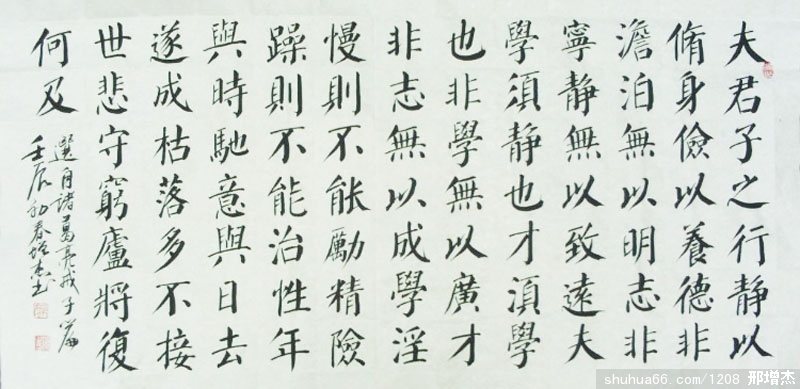 夫君子之行静以
脩身儉以養德非
澹泊無以明志非
寧静無以致遠夫
學須静也才須學
也非學無以廣才
非志無以成學淫
慢則不能勵精險
躁則不能治性年
與時馳意與日去
遂成枯落多不接
世悲守窮廬將復
何及
選自諸葛亮戒子篇
壬辰初春增杰書
shuhua66.com/1208 邢增杰